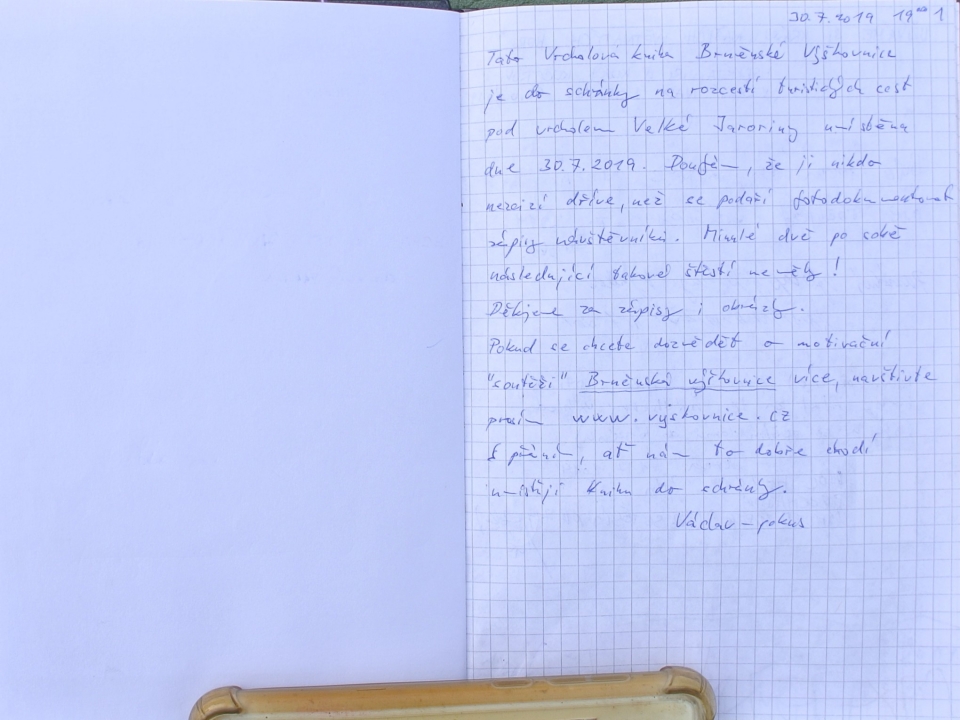 30.7.2019 19⁰⁰ 1
Tato Vrcholová kniha Brněnské Výškovnice
je do schránky na rozcestí turistických cest
pod vrcholem Velké Javořiny umístěna
dne 30.7.2019. Doufám, že ji nikdo
nezcizí dříve, než se podaří fotodokumentovat
zápisy návštěvníků. Minulé dvě po sobě
následující takové štěstí neměly!
Děkujeme za zápisy i obrázky.
Pokud se chcete dozvědět o motivační
"soutěži" Brněnská výškovnice více, navštivte
prosím www.vyskovnice.cz
S přáním, ať nám to dobře chodí
umístěji knihu do schránky.
Václav - pokus